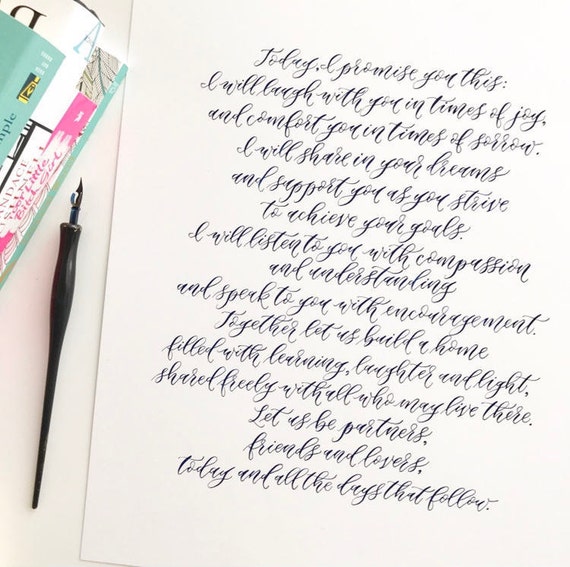 Today, I promise you this:
I will laugh with you in times of joy,
and comfort you in times of sorrow.
I will share in your dreams
and support you as you strive
to achieve your goals.
I will listen to you with compassion
and understanding
and speak to you with encouragement.
Together let us build a home
filled with learning, laughter and light,
shared freely with all who may live there.
Let us be partners,
friends and lovers,
today and all the days that follow.